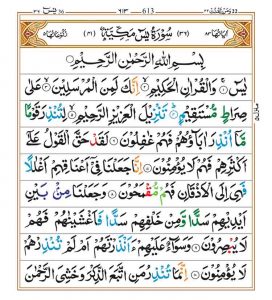 613 ٦١٣
سُوْرَةُ يٰسٓ مَكِّيَّةٌ
بِسْمِ اللّٰهِ الرَّحْمٰنِ الرَّحِيْمِ
يٰسٓ ۚ وَالْقُرْاٰنِ الْحَكِيْمِ ۙ اِنَّكَ لَمِنَ الْمُرْسَلِيْنَ ۙ عَلٰى
صِرَاطٍ مُّسْتَقِيْمٍ ؕ تَنْزِيْلَ الْعَزِيْزِ الرَّحِيْمِ ۙ لِتُنْذِرَ قَوْمًا
مَّاۤ اُنْذِرَ اٰبَآؤُهُمْ فَهُمْ غٰفِلُوْنَ لَقَدْ حَقَّ الْقَوْلُ عَلٰٓى
اَكْثَرِهِمْ فَهُمْ لَا يُؤْمِنُوْنَ اِنَّا جَعَلْنَا فِيْٓ اَعْنَاقِهِمْ اَغْلٰلًا
فَهِيَ اِلَى الْاَذْقَانِ فَهُمْ مُّقْمَحُوْنَ وَجَعَلْنَا مِنْۢ بَيْنِ
اَيْدِيْهِمْ سَدًّا وَّمِنْ خَلْفِهِمْ سَدًّا فَاَغْشَيْنٰهُمْ فَهُمْ
لَا يُبْصِرُوْنَ وَسَوَآءٌ عَلَيْهِمْ ءَاَنْذَرْتَهُمْ اَمْ لَمْ تُنْذِرْهُمْ
لَا يُؤْمِنُوْنَ اِنَّمَا تُنْذِرُ مَنِ اتَّبَعَ الذِّكْرَ وَخَشِيَ الرَّحْمٰنَ